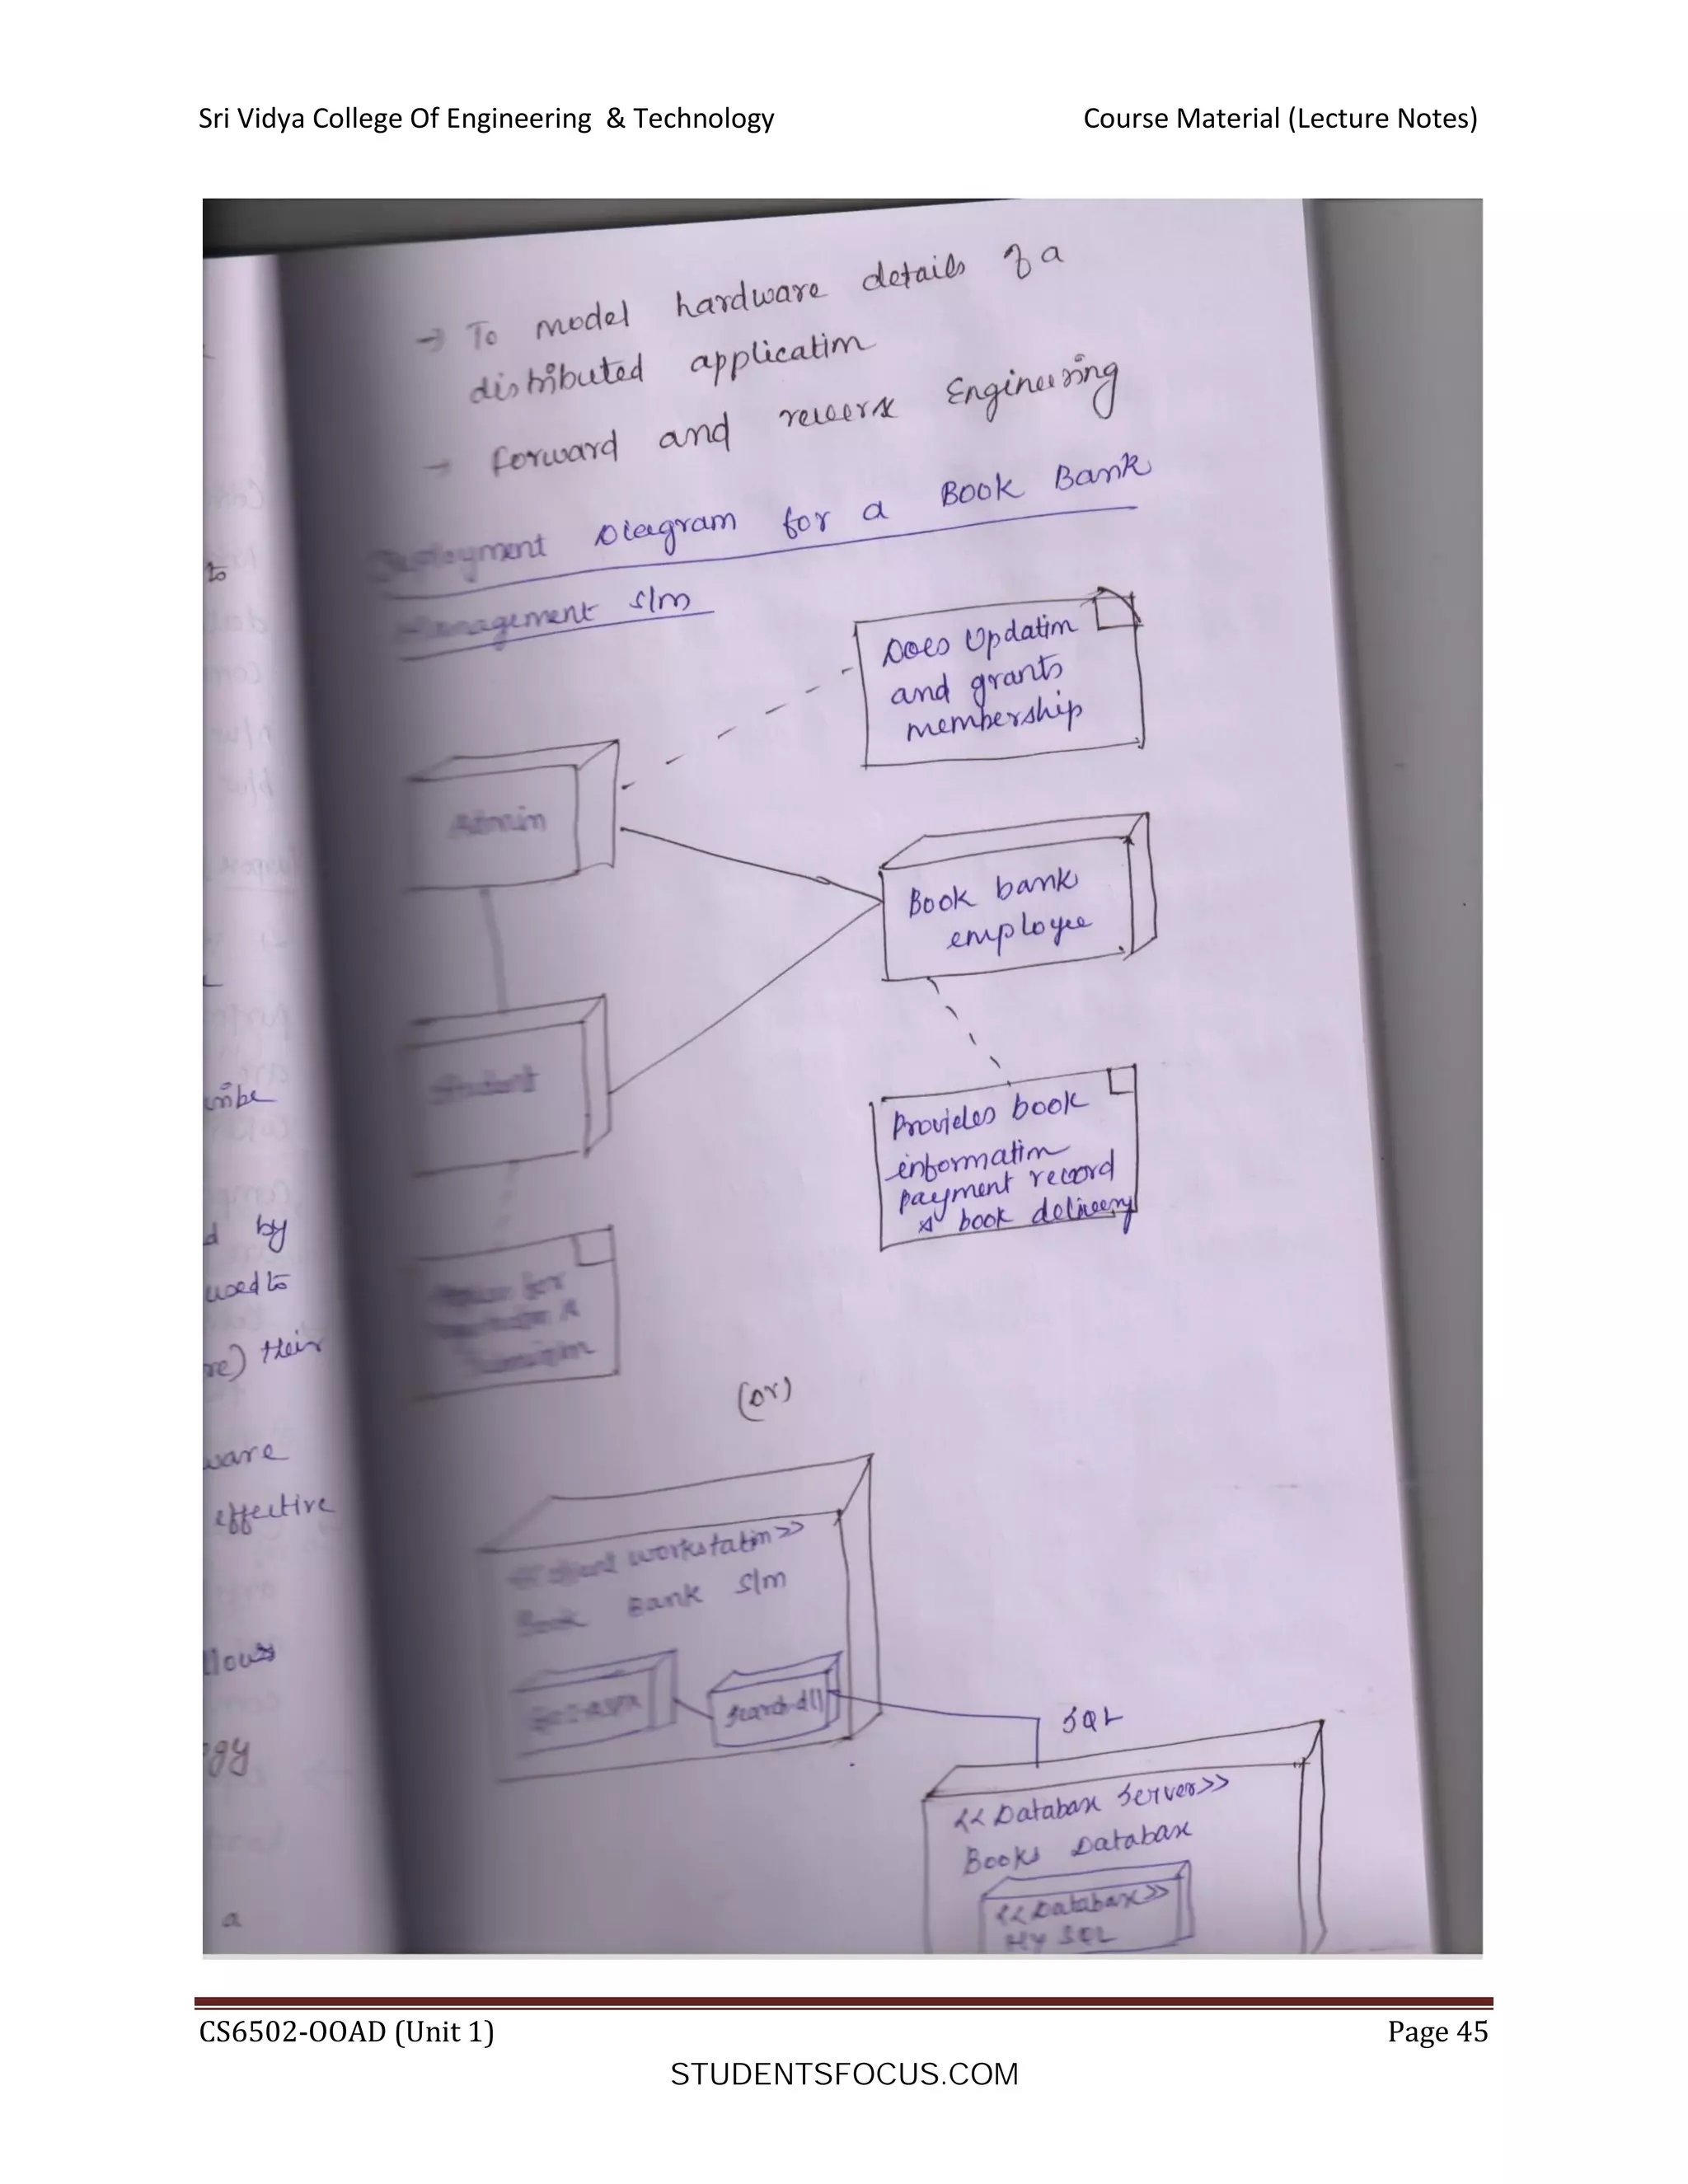 Sri Vidya College Of Engineering & Technology Course Material (Lecture Notes)
→ To model hardware details of a
distributed application
→ Forward and reverse Engineering
Deployment Diagram for a Book Bank
Management s/m
Does Updation
and grants
membership
Admin
Book bank
employee
Student
Provides book
information
payment record
& book delivery
(or)
<<client workstation>>
Book Bank s/m
search
SQL
<<Database Server>>
Books Database
<<Database>>
My SQL
to
d by
used to
re) their
ware
effective
a
CS6502-OOAD (Unit 1) Page 45
STUDENTSFOCUS.COM